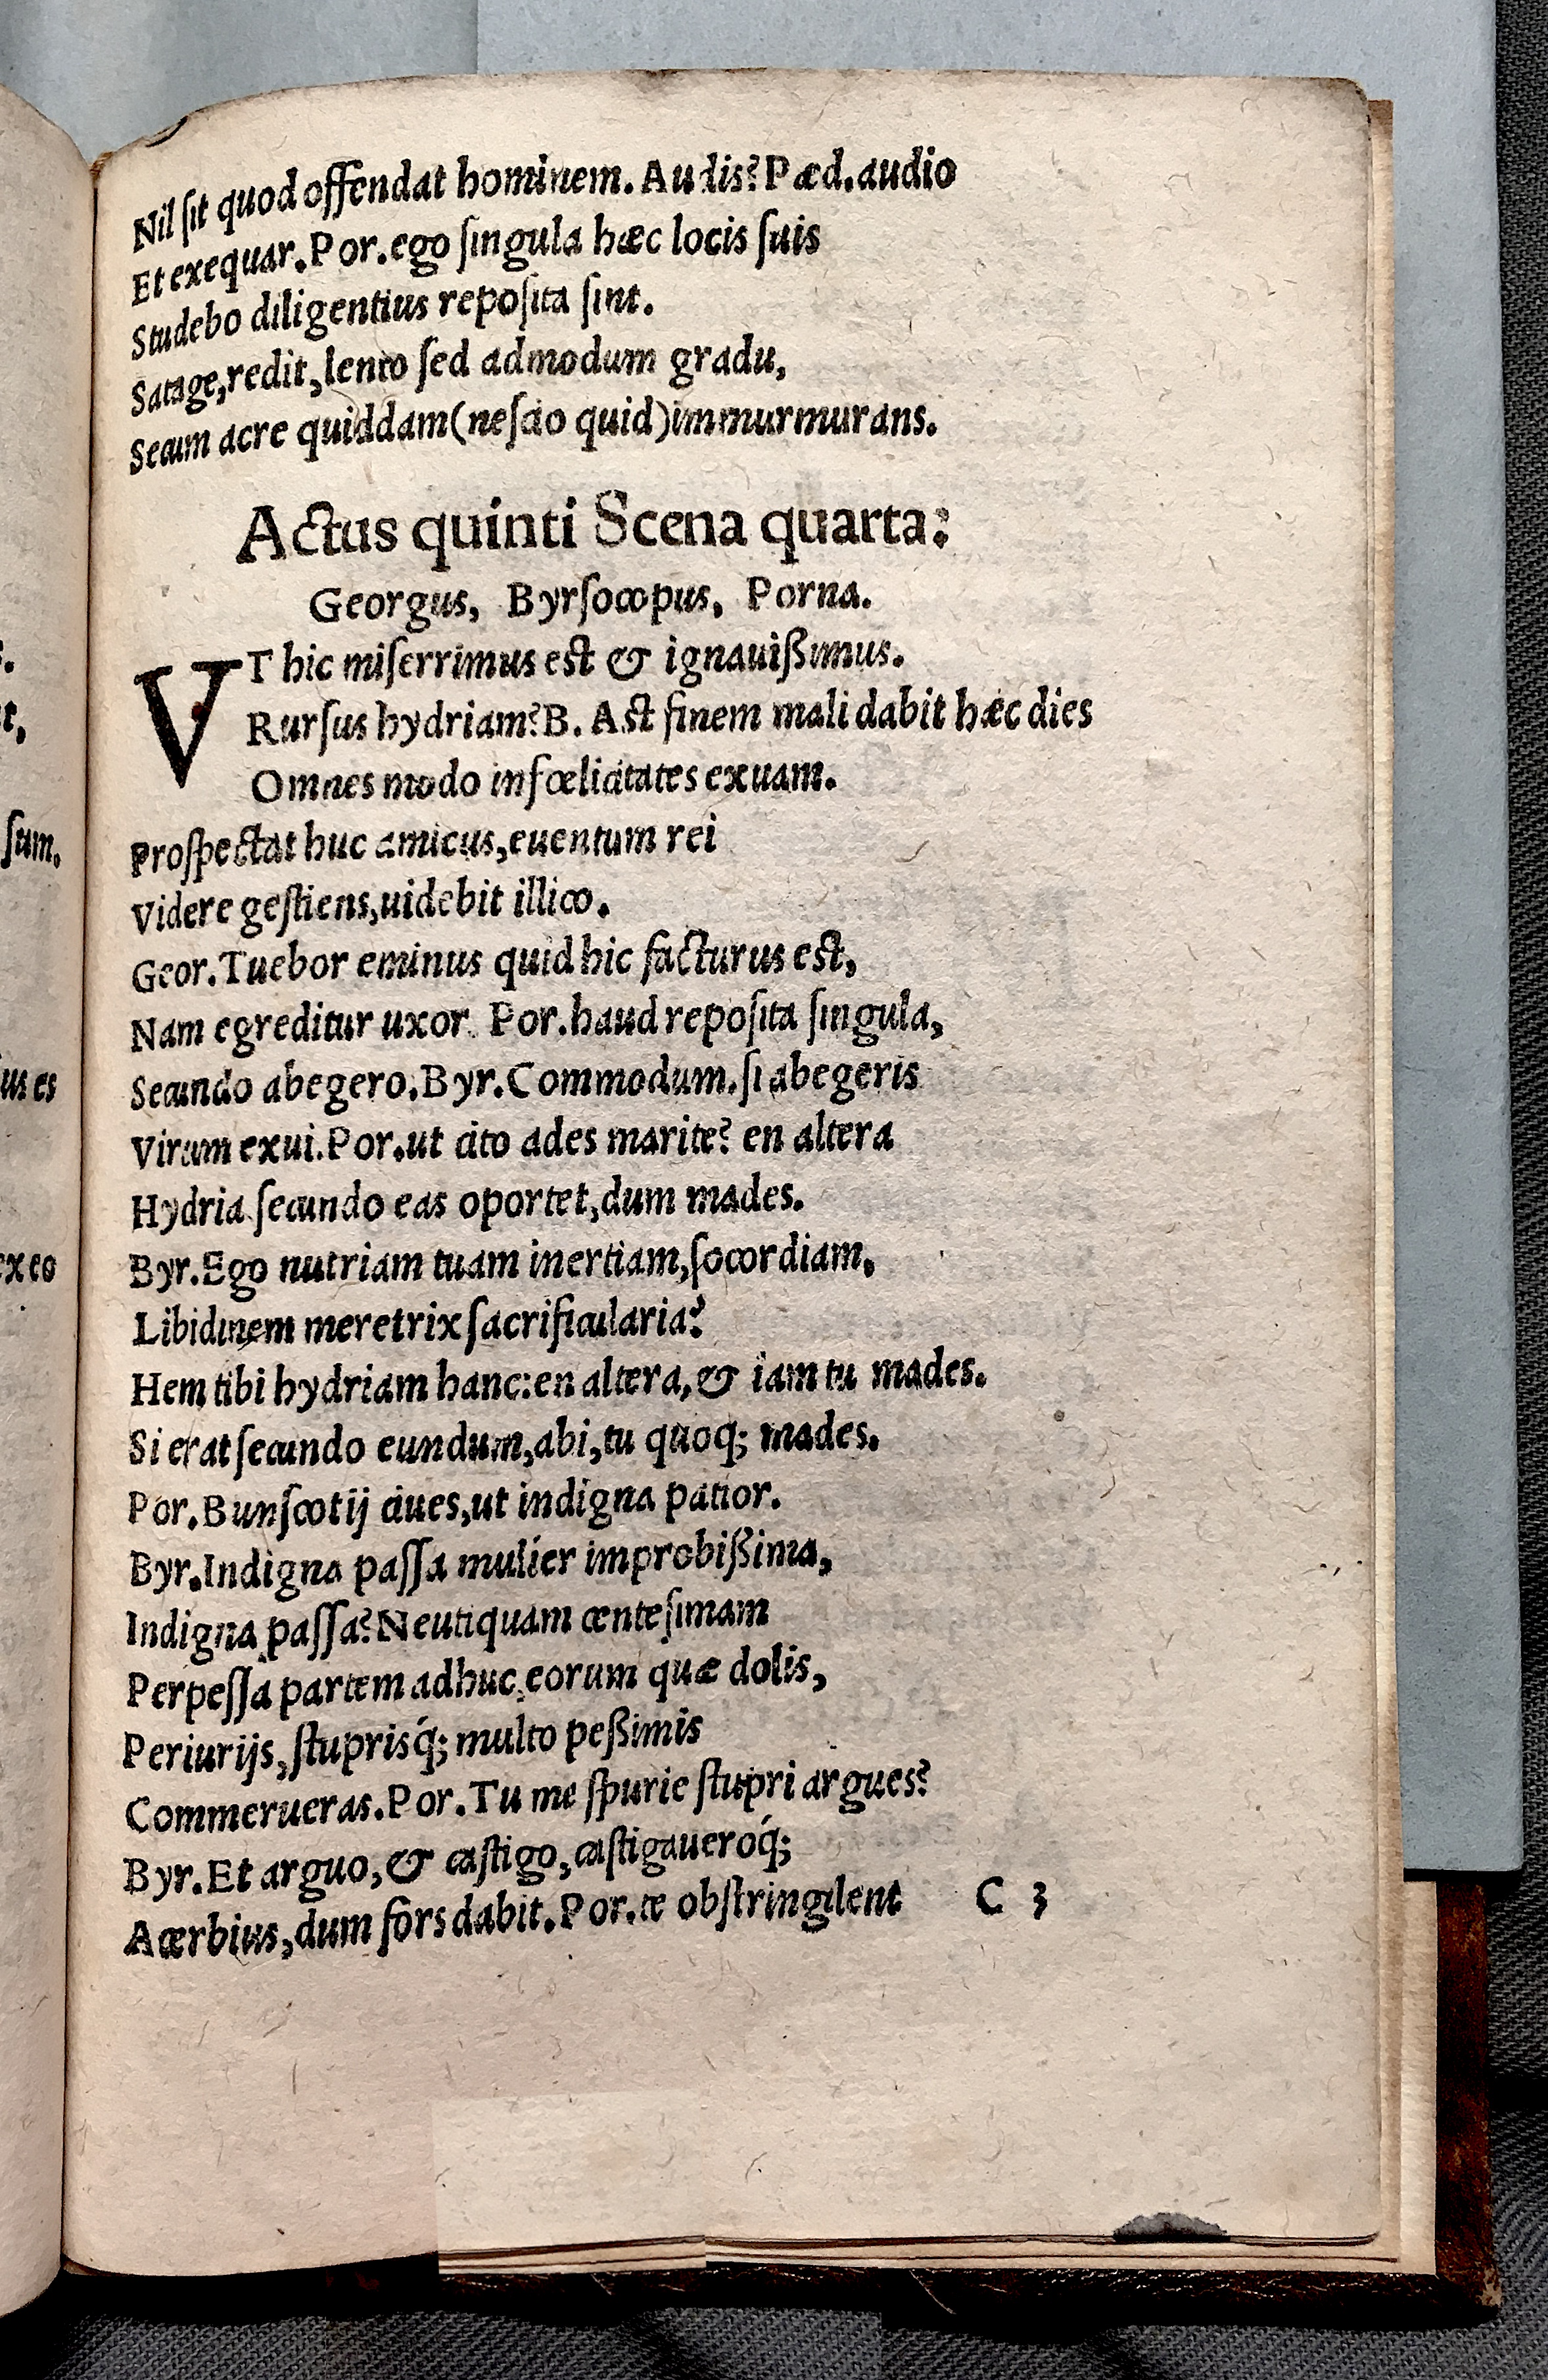 Nil ſit quod offendat hominem. Audis? Pæd. audio
Et exequar. Por. ego ſingula hæc locis ſuis
Studebo diligentius repoſita ſint.
Satage, redit, lento ſed admodum gradu,
Secum acre quiddam (neſcio quid) immurmurans.
Actus quinti Scena quarta:
Georgus, Byrſocopus, Porna.
VT hic miſerrimus est & ignauißimus.
Rurſus hydriam? B. Ast finem mali dabit hæc dies
Omnes modo infœlicitates exuam.
Proſpectat huc amicus, euentum rei
Videre geſtiens, uidebit illico.
Geor. Tuebor eminus quid hic facturus est,
Nam egreditur uxor. Por. haud repoſita ſingula,
Secundo abegero. Byr. Commodum. ſi abegeris
Virum exui. Por. ut cito ades marite? en altera
Hydria ſecundo eas oportet, dum mades.
Byr. Ego nutriam tuam inertiam, ſocordiam,
Libidinem meretrix ſacrificularia?
Hem tibi hydriam hanc: en altera, & iam tu mades.
Si erat ſecundo eundum, abi, tu quoq; mades.
Por. Bunſcotij ciues, ut indigna patior.
Byr. Indigna paſſa mulier improbißima,
Indigna paſſa? Neutiquam centeſimam
Perpeſſa partem adhuc eorum quæ dolis,
Periurijs, ſtuprisq́; multo peßimis
Commerueras. Por. Tu me ſpurie ſtupri argues?
Byr. Et arguo, & caſtigo, caſtigaueroq́;
Acerbius, dum fors dabit. Por. te obſtringilent C 3
s.
t,
ſum.
ius es
exeo